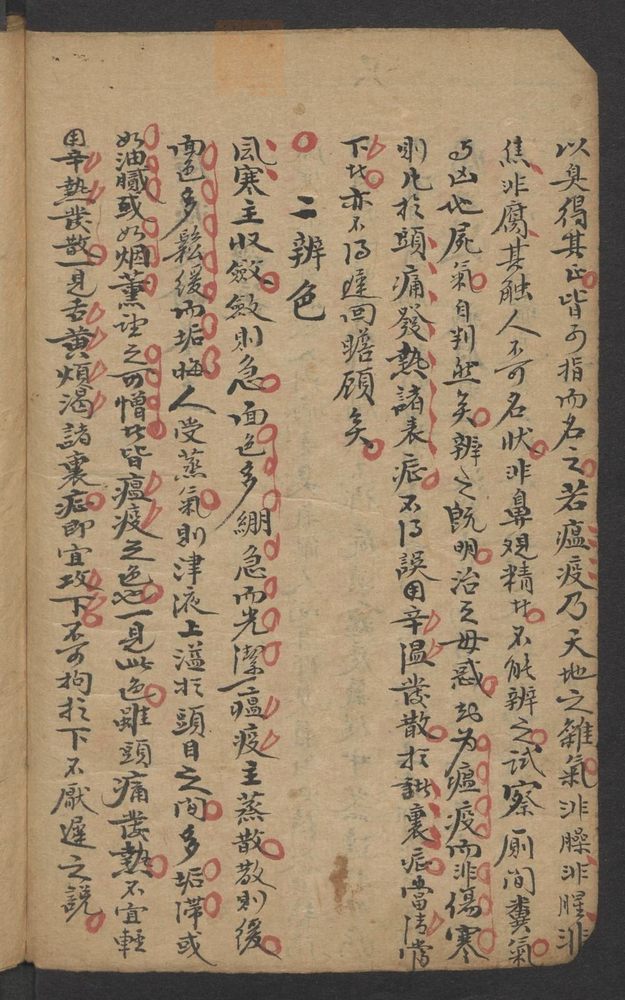 以臭得其正皆可指而名之若瘟疫乃天地之雜氣非臊非腥非
焦非腐其触人不可名狀非鼻觀精者不能辨之試察厠間糞氣
与凶地屍氣自判然矣辨之既明治之毋惑知为瘟疫而非傷寒
则凡扵頭痛發熱諸表症不得誤用辛温發散扵諸裏症當清當
下者亦不得遲回瞻顧矣
二辨色
風寒主收斂斂则急面色多绷急而光潔瘟疫主蒸散散则缓
面色多鬆缓而垢晦人受蒸氣则津液上溢扵頭目之间多垢滞或
如油腻或如烟薰望之可憎者皆瘟疫之色也一見此色雖頭痛發熱不宜輕
用辛熱發散一見舌黄煩渴諸裏症即宜攻下不可拘扵下不厭遲之說